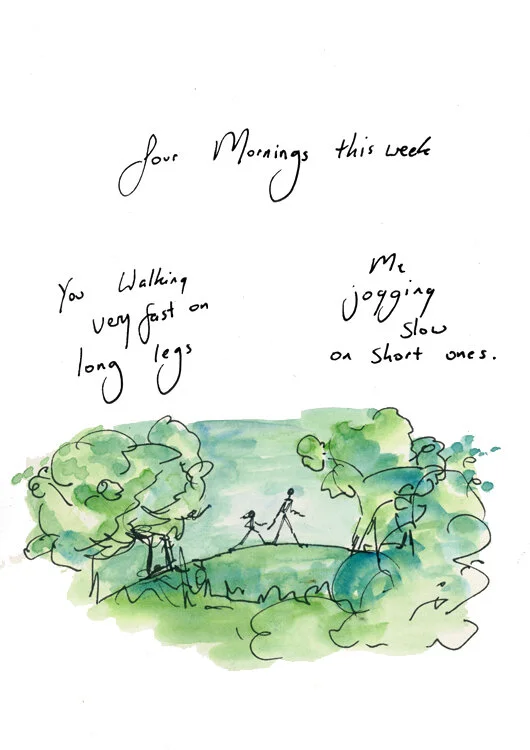 four Mornings this week
You Walking
very fast on
long legs
Me
jogging
slow
on short ones.